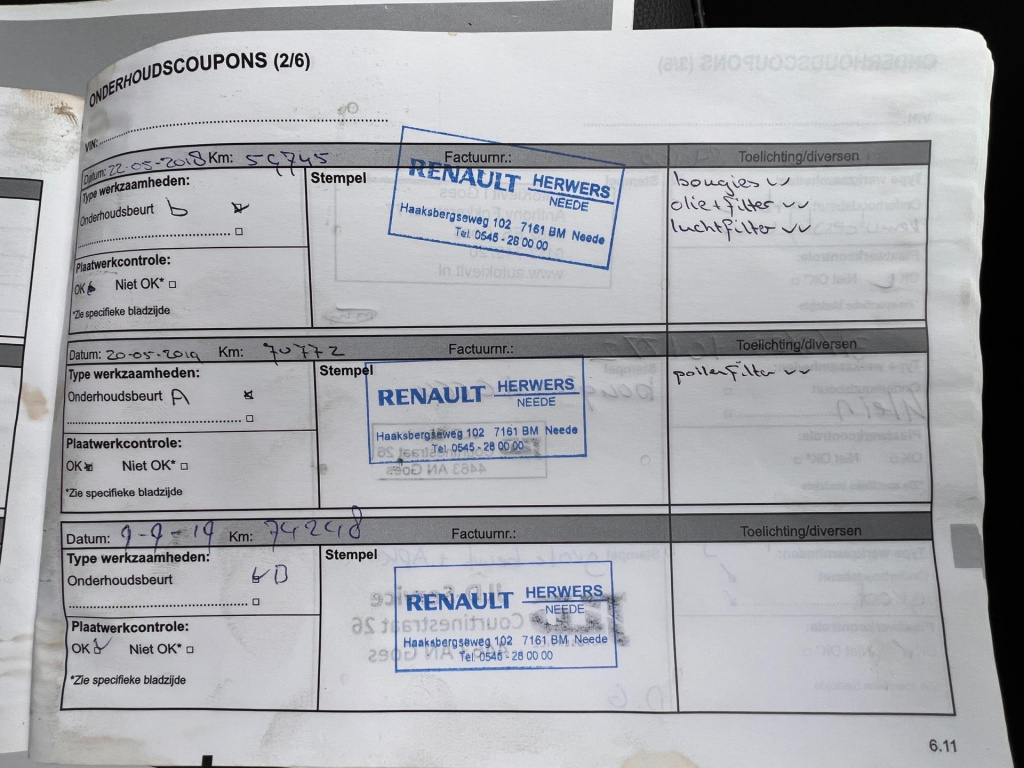 ONDERHOUDSCOUPONS (2/6)
VIN:
Datum: 22-05-2018 Km: 59745 Factuurnr.: Toelichting/diversen
Type werkzaamheden:
Onderhoudsbeurt b
Stempel
RENAULT HERWERS
NEEDE
Haaksbergseweg 102 7161 BM Neede
Tel. 0545 - 28 00 00
bougies
olie+filter
luchtfilter
Plaatwerkcontrole:
OK Niet OK*
*Zie specifieke bladzijde
Datum: 20-05-2019 Km: 70772 Factuurnr.: Toelichting/diversen
Type werkzaamheden:
Onderhoudsbeurt A
Stempel
RENAULT HERWERS
NEEDE
Haaksbergseweg 102 7161 BM Neede
Tel. 0545 - 28 00 00
pollenfilter
Plaatwerkcontrole:
OK Niet OK*
*Zie specifieke bladzijde
Datum: 9-9-19 Km: 74248 Factuurnr.: Toelichting/diversen
Type werkzaamheden:
Onderhoudsbeurt
Stempel
RENAULT HERWERS
NEEDE
Haaksbergseweg 102 7161 BM Neede
Tel. 0545 - 28 00 00
Plaatwerkcontrole:
OK Niet OK*
*Zie specifieke bladzijde
6.11